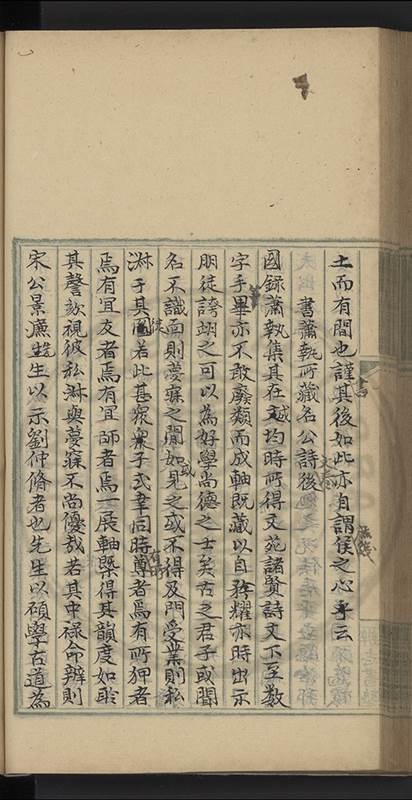 土而有間也謹其後如此亦自謂侯之心乎云
書蕭執所藏名公詩後
國錄蕭執集其在越均時所得文苑諸賢詩文下至數
字手畢亦不敢廢類而成軸既藏以自務耀亦時出示
朋徒誇翊之可以為好學尚德之士矣古之君子或聞
名不識面則夢寐之間如見之或不得及門受業則私
淋于其徒若此甚衆矣子式幸同時尊者焉有所狎者
焉有宜友者焉有宜師者焉一展軸槩得其韻度如聆
其謦欬視彼私淋與夢寐不尚優哉若其中祿命辨則
宋公景濂先生以示劉仲脩者也先生以碩學古道為